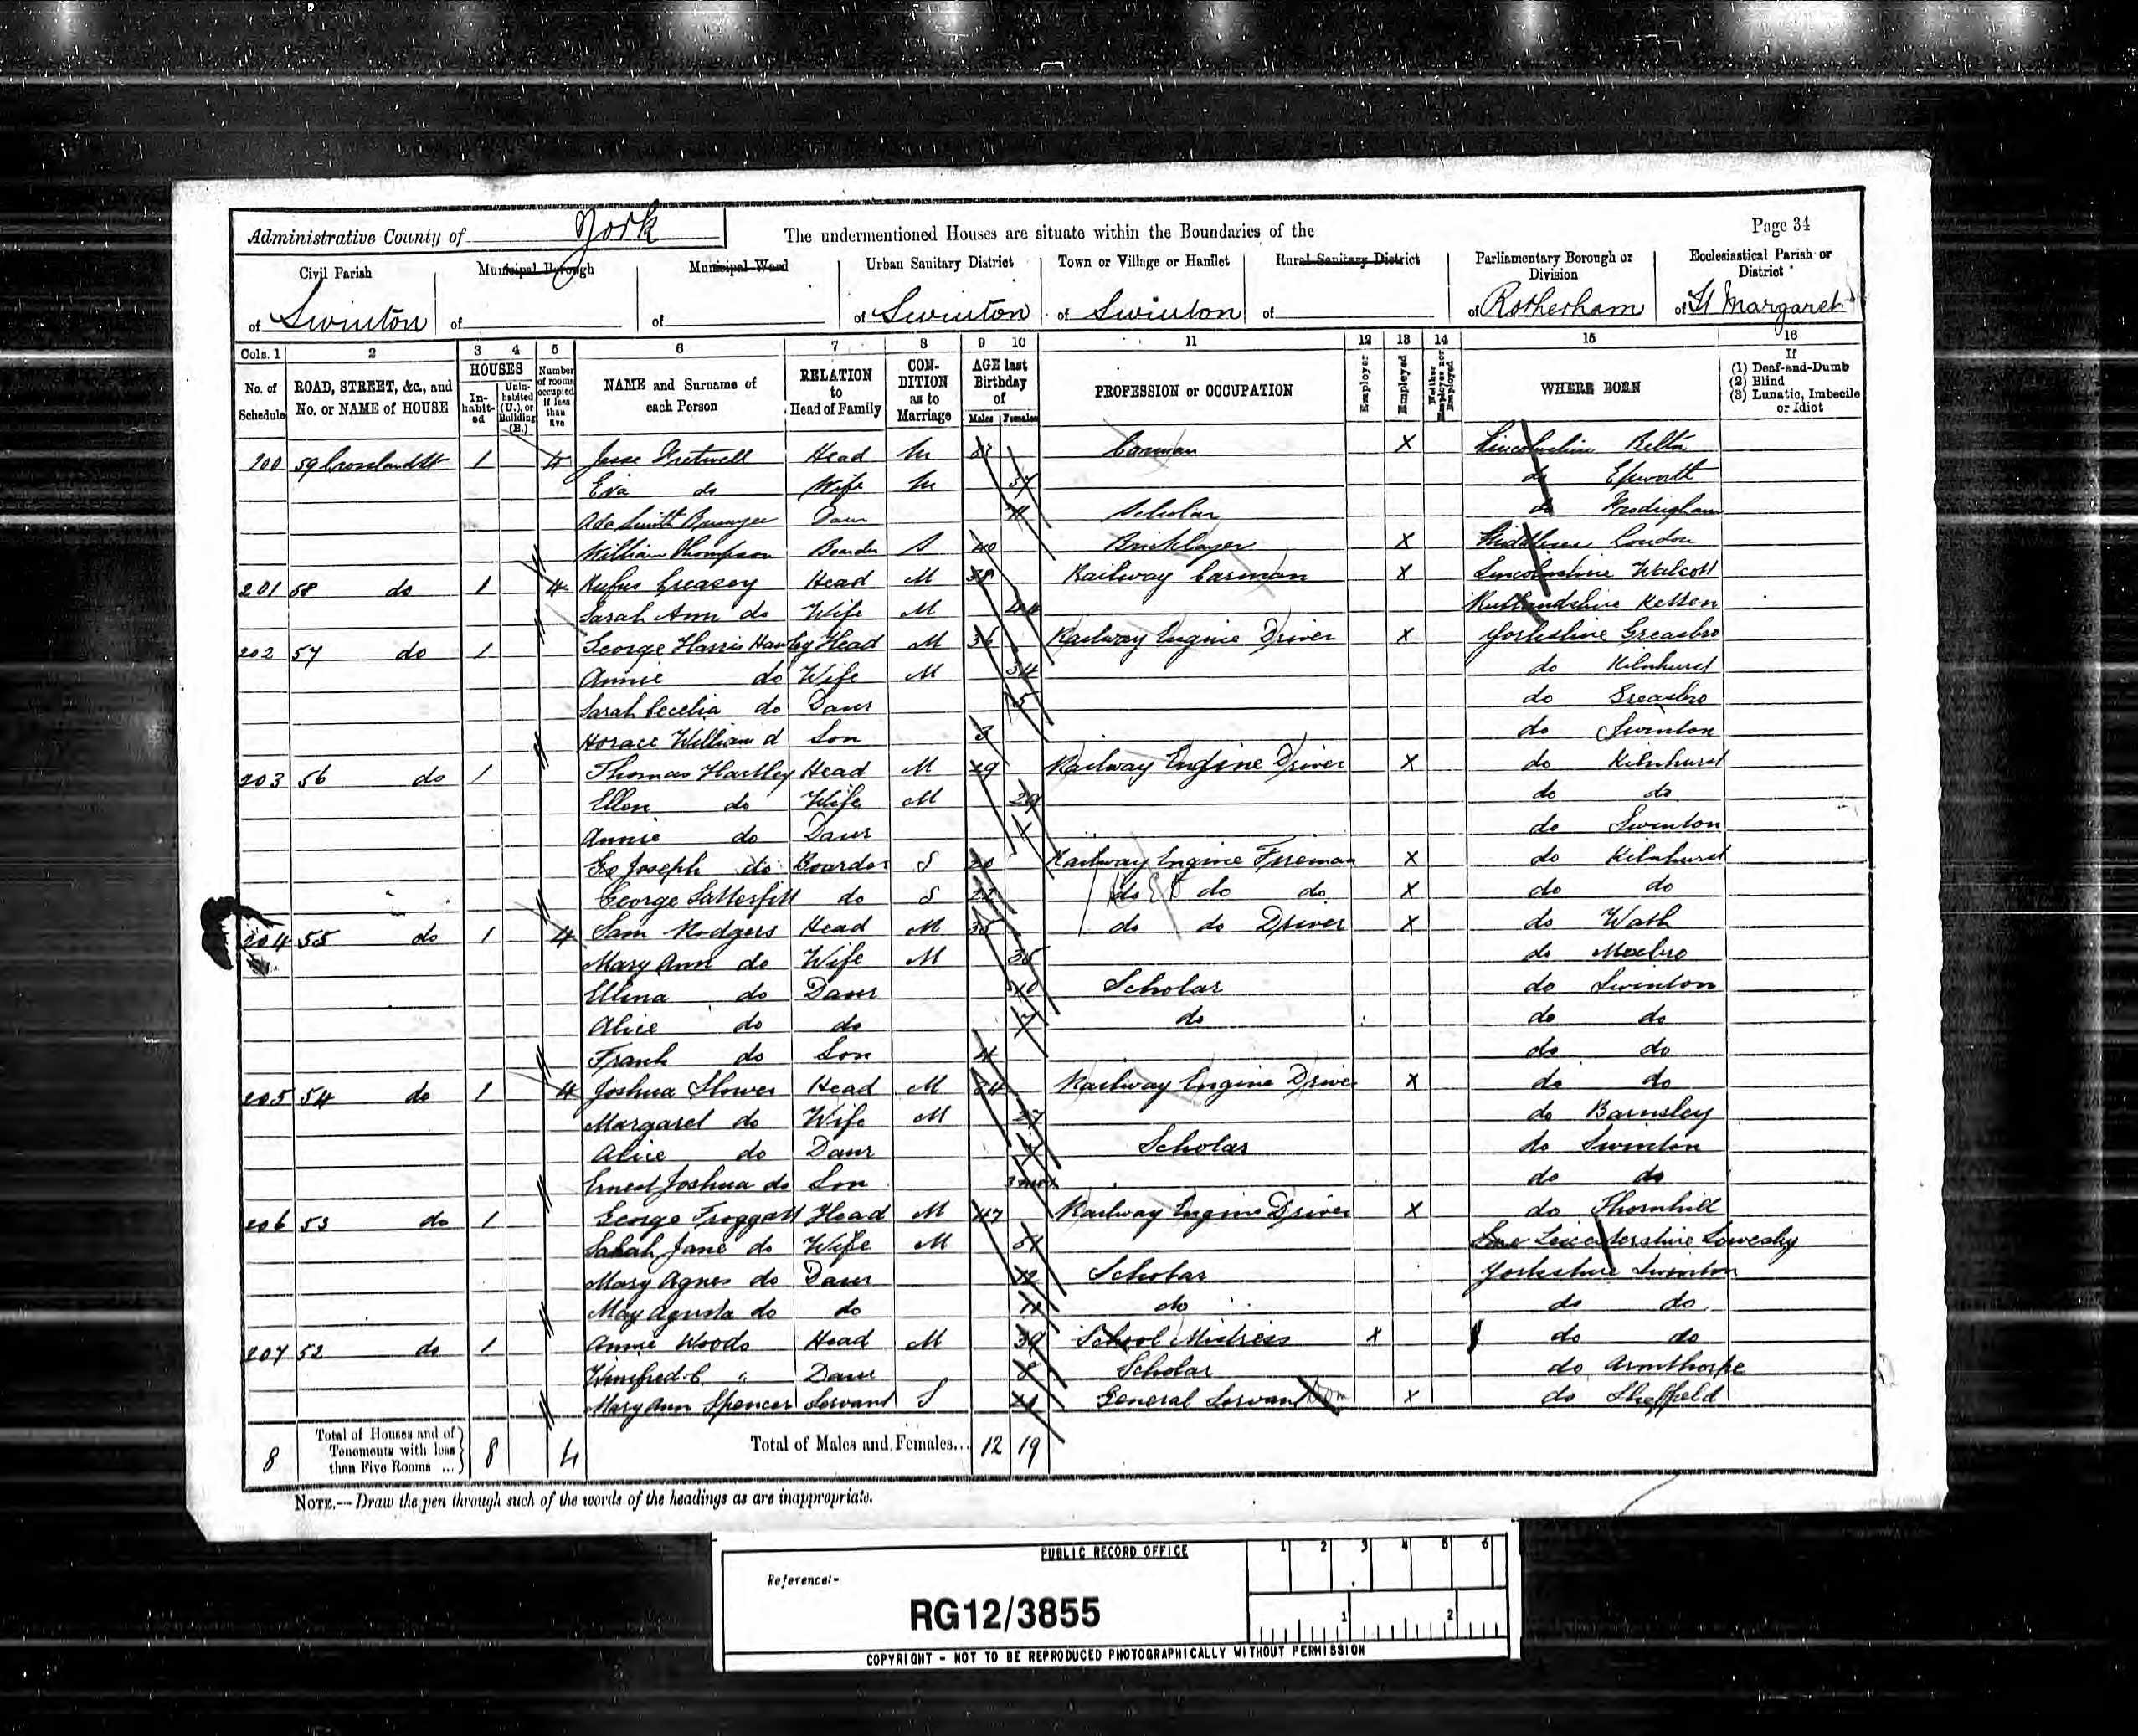 Administrative County of York
The undermentioned Houses are situate within the Boundaries of the
Page 34
Civil Parish of Swinton
Municipal Borough of
Municipal Ward of
Urban Sanitary District of Swinton
Town or Village or Hamlet of Swinton
Rural Sanitary District of
Parliamentary Borough or Division of Rotherham
Ecclesiastical Parish or District of St Margaret
Cols. 1 2 3 4 5 6 7 8 9 10 11 12 13 14 15 16
No. of Schedule
ROAD, STREET, &c., and No. or NAME of HOUSE
HOUSES
Inhabited
Uninhabited (U.), or Building (B.)
Number of rooms occupied if less than five
NAME and Surname of each Person
RELATION to Head of Family
CONDITION as to Marriage
AGE last Birthday of
Males Females
PROFESSION or OCCUPATION
Employer
Employed
Neither Employer nor Employed
WHERE BORN
If
(1) Deaf-and-Dumb
(2) Blind
(3) Lunatic, Imbecile or Idiot
200 59 Crossland St 1 4 Jesse Fretwell Head M Carman X Lincolnshire Belton
Eva do Wife M 37 do Epworth
Ada Smith Daur 11 Scholar do Frodingham
William Thompson Boarder S 40 Bricklayer X Middlesex London
201 58 do 1 4 Rufus Creasey Head M 38 Railway Carman X Lincolnshire Walcott
Sarah Ann do Wife M 44 Rutlandshire Ketten
202 57 do 1 George Harris Hawley Head M 36 Railway Engine Driver X Yorkshire Greasbro
Annie do Wife M 34 do Kilnhurst
Sarah Cecelia do Daur 5 do Greasbro
Horace William d Son 3 do Swinton
203 56 do 1 Thomas Hartley Head M 29 Railway Engine Driver X do Kilnhurst
Ellen do Wife M 29 do do
Annie do Daur do Swinton
Geo Joseph do Boarder S 20 Railway Engine Fireman X do Kilnhurst
George Satterfitt do S 22 do do do X do do
204 55 do 1 4 Sam Rodgers Head M 35 do do Driver X do Wath
Mary Ann do Wife M 35 do Mexbro
Ellena do Daur 10 Scholar do Swinton
Alice do do 7 do do do
Frank do Son 4 do do
205 54 do 1 4 Joshua Slower Head M 34 Railway Engine Driver X do do
Margaret do Wife M 27 do Barnsley
Alice do Daur Scholar do Swinton
Ernest Joshua do Son 3 mos do do
206 53 do 1 George Froggatt Head M 47 Railway Engine Driver X do Thornhill
Sarah Jane do Wife M 51 Leicestershire Lowesby
Mary Agnes do Daur 12 Scholar Yorkshire Swinton
May Agusta do do 11 do do do
207 52 do 1 Annie Woods Head M 39 School Mistress X do do
Winifred C. " Daur 8 Scholar do Armthorpe
Mary Ann Spencer Servant S 21 General Servant Dom X do Sheffield
8 Total of Houses and of Tenements with less than Five Rooms ... 8 4 Total of Males and Females... 12 19
NOTE.—Draw the pen through such of the words of the headings as are inappropriate.
PUBLIC RECORD OFFICE
1 2 3 4 5 6
Reference:-
RG12/3855
1 2
COPYRIGHT - NOT TO BE REPRODUCED PHOTOGRAPHICALLY WITHOUT PERMISSION